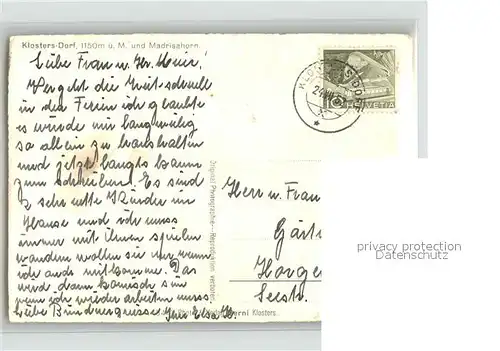 Klosters-Dorf, 1150m ü. M. und Madrisahorn.
Liebe Frau u. Hr. Meier,
Vergeht die Zeit schnell
in den Ferien ich glaubte
es würde mir langweilig
so allein zu haushalten
und jetzt langts kaum
zum schreiben. Es sind
2 sehr nette Kinder im
Hause und ich muss
immer mit ihnen spielen
wandern wollen sie nur wenn
ich auch mitkomme. Das
wird dann komisch sein
wenn ich wieder arbeiten muss.
Liebe Bündnergrüsse Elsa H.
Original Photographie - Reproduktion verboten.
Berni Klosters.
HELVETIA
10
Herr u. Frau
Gärt
Horge
Seestr.
privacy protection
Datenschutz